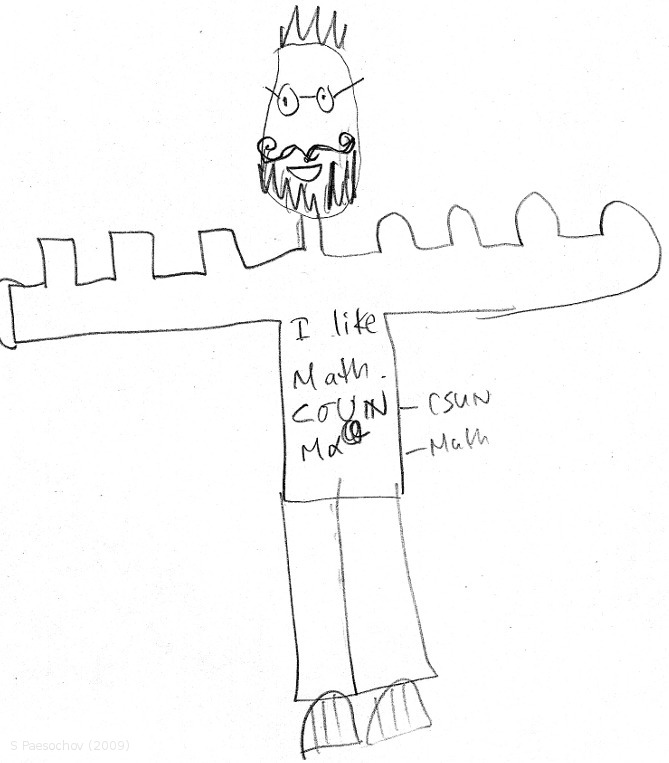 I like
Math.
COUIN
CSUN
Math
S Paesochov (2009)